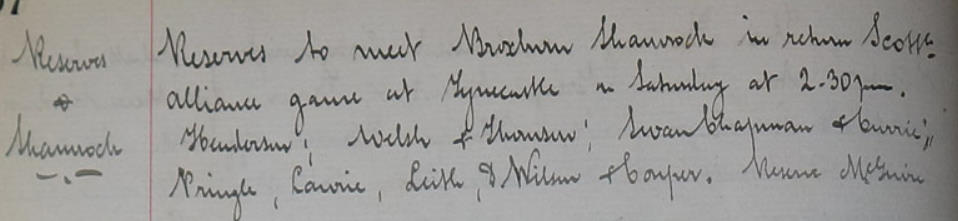 Reserves
&
Shamrock
Reserves to meet Broxburn Shamrock in return Scotth
alliance game at Tynecastle on Saturday at 2-30pm.
Henderson; Welsh & Thomson; Swan Chapman & Currie;
Pringle, Cowie, Leith, & Wilson & Cowper. Reserve McGuire